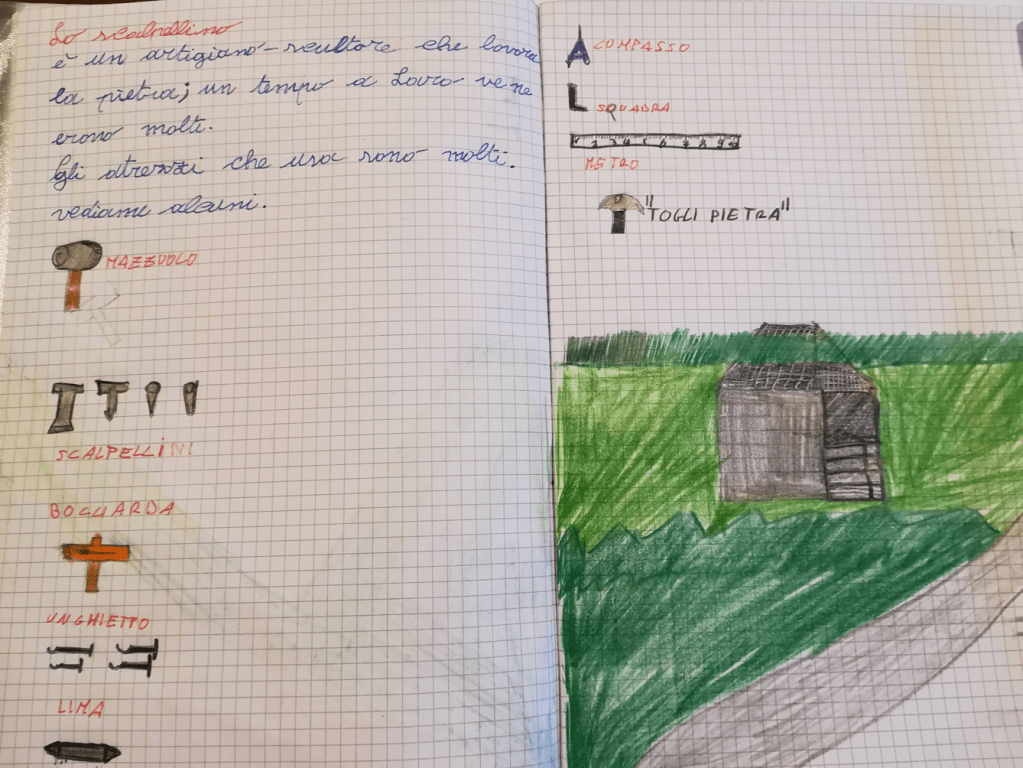 Lo scalpellino
è un artigiano-scultore che lavora
la pietra; un tempo a Lovro ve ne
erano molti.
Gli attrezzi che usa sono molti.
vediamo alcuni.
MAZZUOLO
SCALPELLINI
BOCCIARDA
UNGHIETTO
LIMA
COMPASSO
SQUADRA
1 2 3 4 5 6 7 8 9 10
METRO
"TOGLI PIETRA"